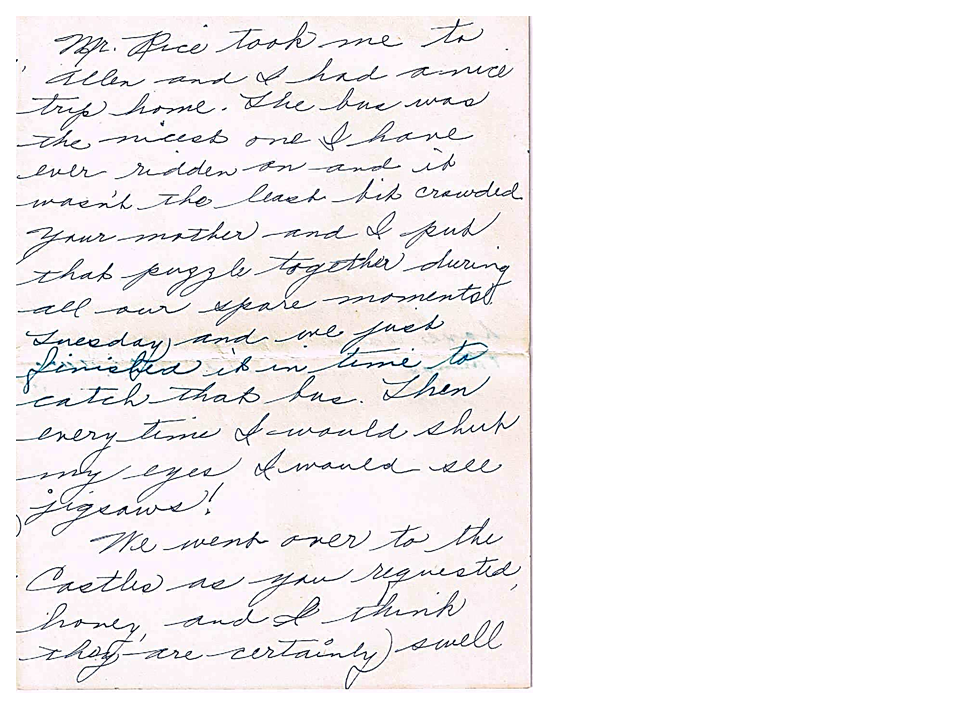 Mr. Rice took me to
Allen and I had a nice
trip home. The bus was
the nicest one I have
ever ridden on and it
wasn't the least bit crowded
Your mother and I put
that puzzle together during
all our spare moments
Tuesday and we just
finished it in time to
catch that bus. Then
every time I would shut
my eyes I would see
jigsaws!
We went over to the
Castles as you requested,
honey, and I think
they are certainly swell